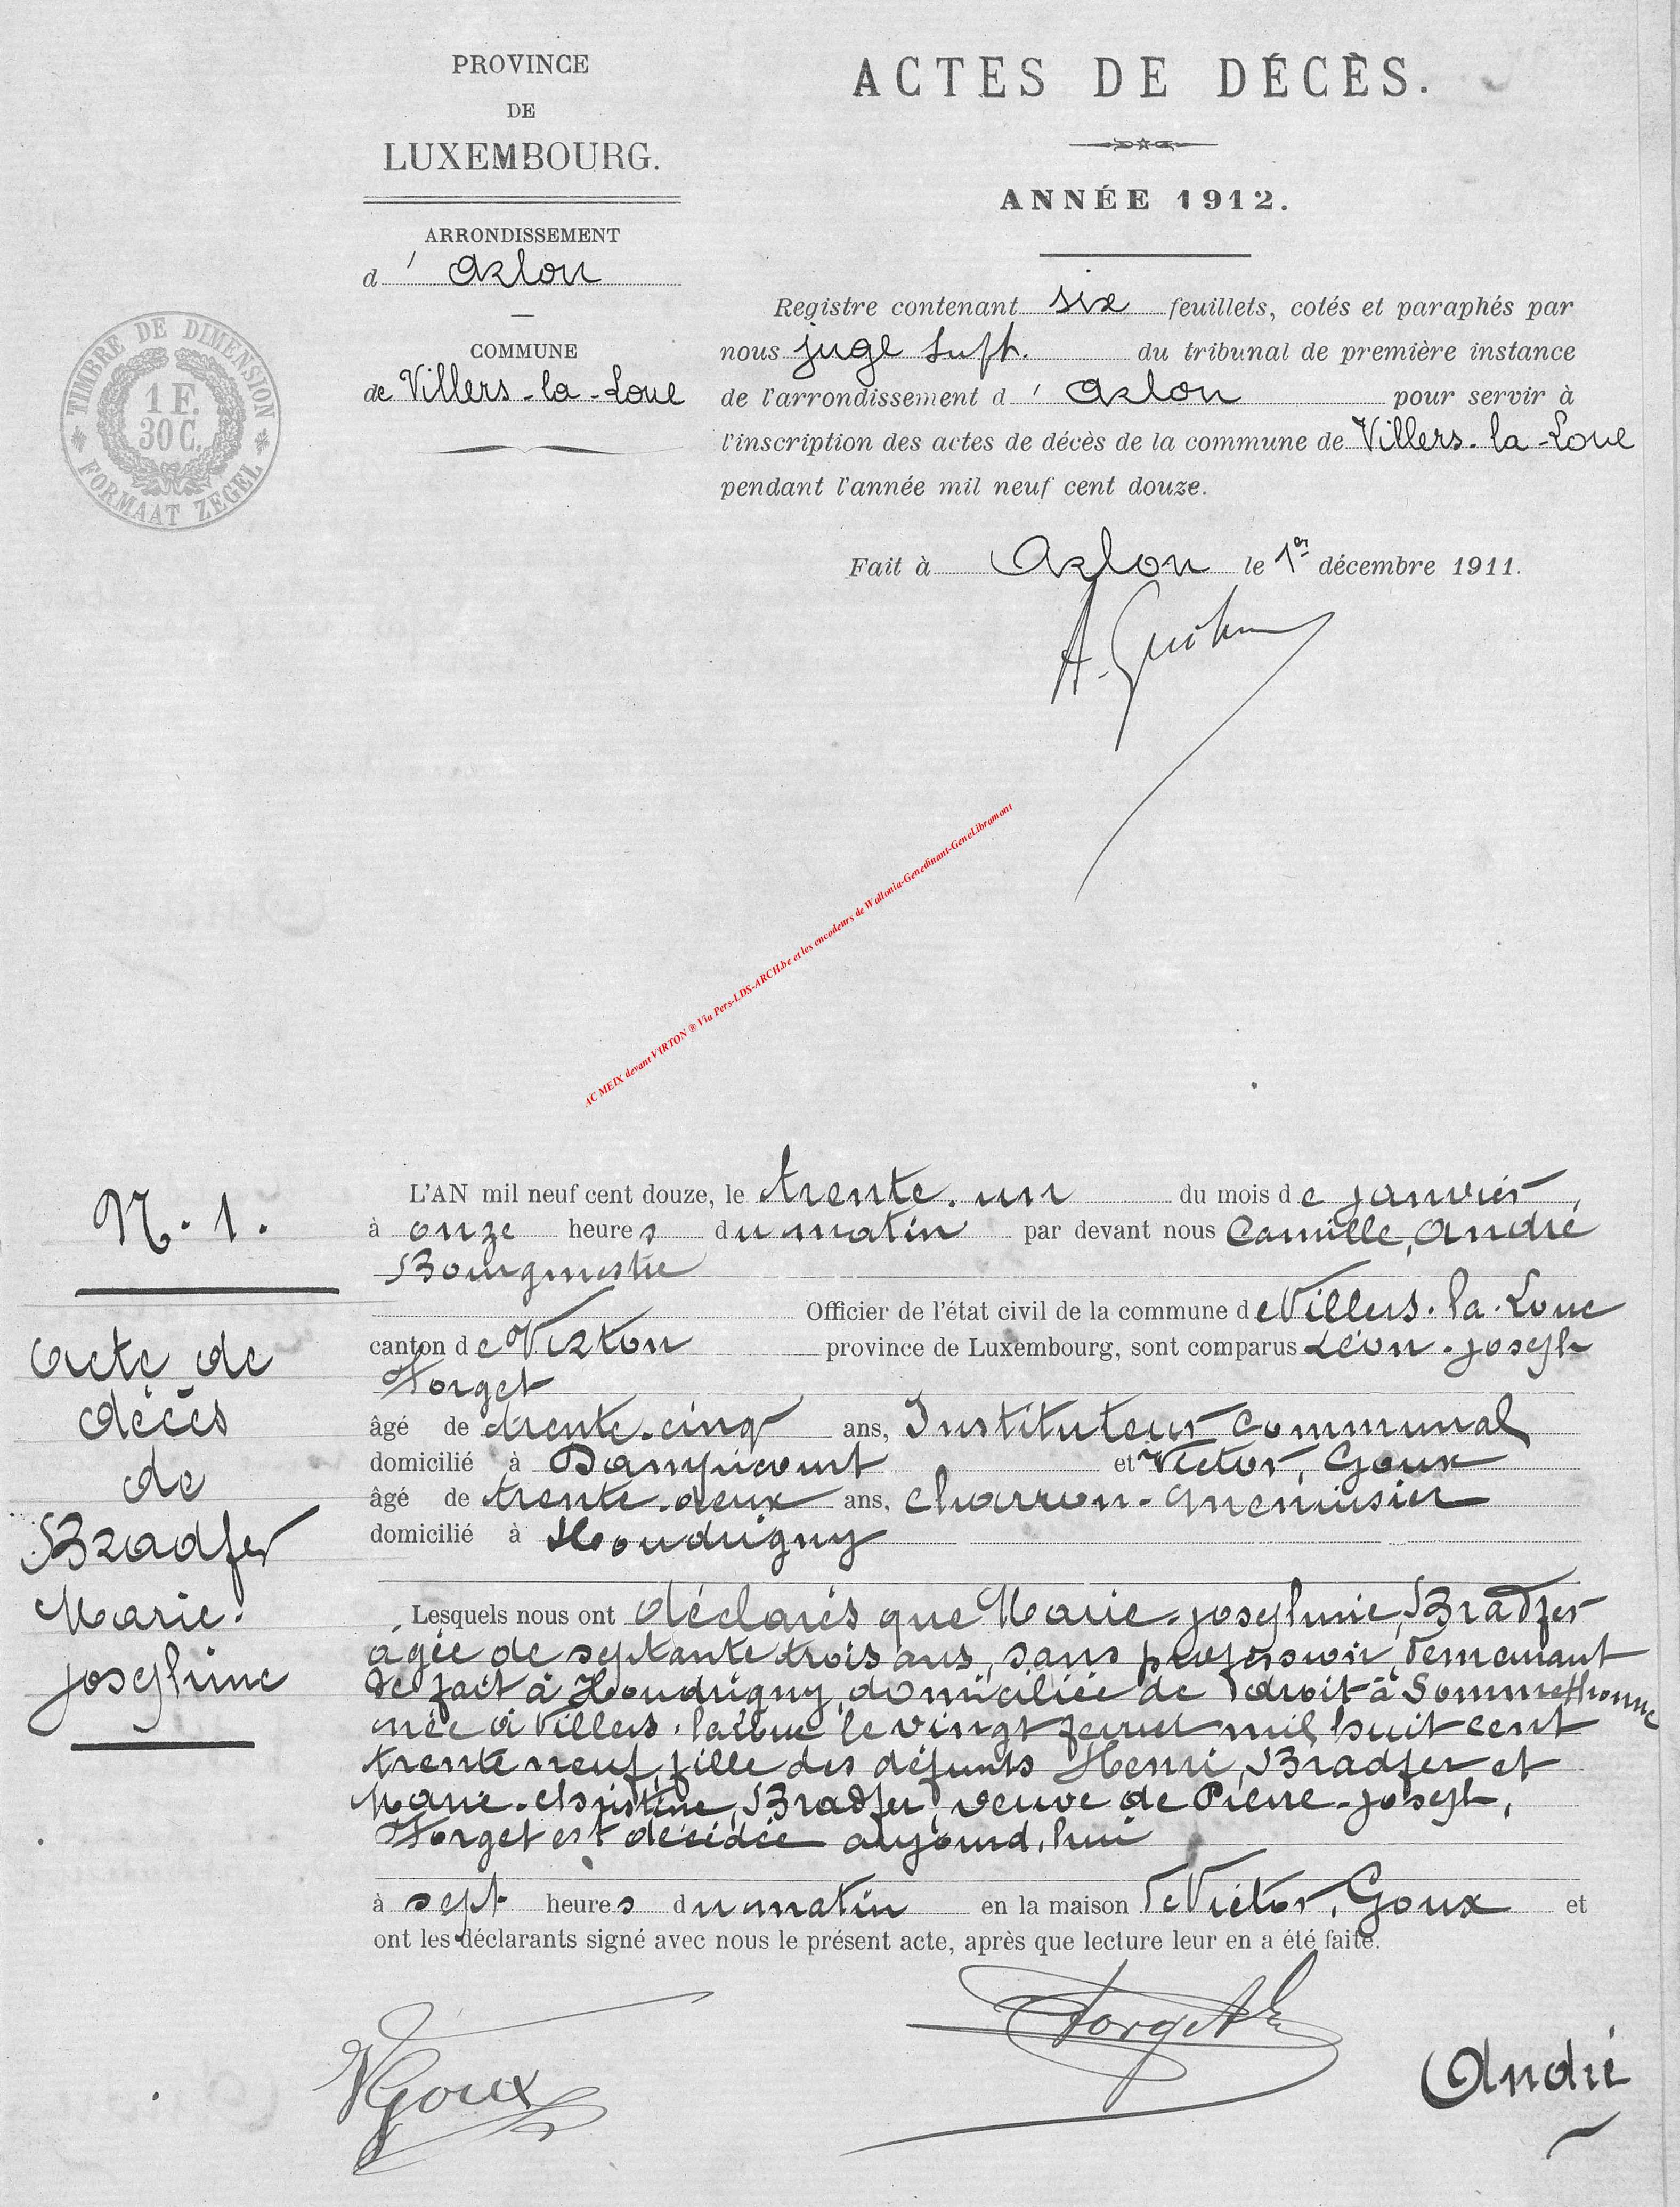 PROVINCE
DE
LUXEMBOURG.
ARRONDISSEMENT
d'Arlon
COMMUNE
de Villers-la-Loue
TIMBRE DE DIMENSION
1 F.
30 C.
FORMAAT ZEGEL
ACTES DE DÉCÈS.
ANNÉE 1912.
Registre contenant six feuillets, cotés et paraphés par
nous juge supt. du tribunal de première instance
de l'arrondissement d'Arlon pour servir à
l'inscription des actes de décès de la commune de Villers-la-Loue
pendant l'année mil neuf cent douze.
Fait à Arlon le 1er décembre 1911.
AC MEIX devant VIRTON ® Via Pers-LDS-ARCH.be et les encodeurs de Wallonia-Genedinant-GeneLibramont
N. 1.
Acte de
décès
de
Bradfer
Marie.
Joséphine
L'AN mil neuf cent douze, le trente-un du mois de janvier,
à onze heures du matin par devant nous Camille, André
Bourgmestre
Officier de l'état civil de la commune de Villers-la-Loue
canton de Virton province de Luxembourg, sont comparus Léon-Joseph
Forget
âgé de trente-cinq ans, Instituteur communal
domicilié à Dampicourt et Victor, Goux
âgé de trente-deux ans, charron-menuisier
domicilié à Houdrigny
Lesquels nous ont déclarés que Marie-Joséphine, Bradfer
agée de septante trois ans, sans profession, demeurant
de fait à Houdrigny, domiciliée de droit à Sommethonne
née à Villers-la-Loue le vingt février mil huit cent
trente neuf, fille des défunts Henri, Bradfer et
Marie-Christine, Bradfer, veuve de Pierre-Joseph,
Forget est décédée aujourd'hui
à sept heures du matin en la maison de Victor, Goux et
ont les déclarants signé avec nous le présent acte, après que lecture leur en a été faite.
VGoux
Forget
André